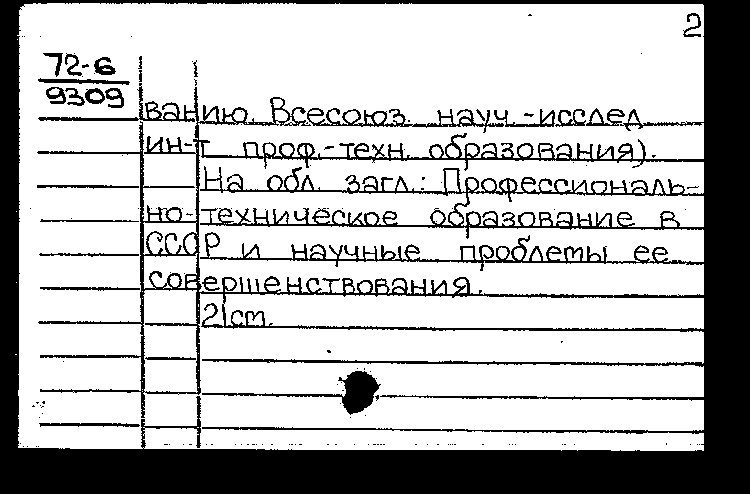 2
72-6
9309
ванию. Всесоюз. науч.-исслед.
ин-т проф.-техн. образования).
На обл. загл.: Профессиональ-
но-техническое образование в
СССР и научные проблемы ее
совершенствования.
21cm.